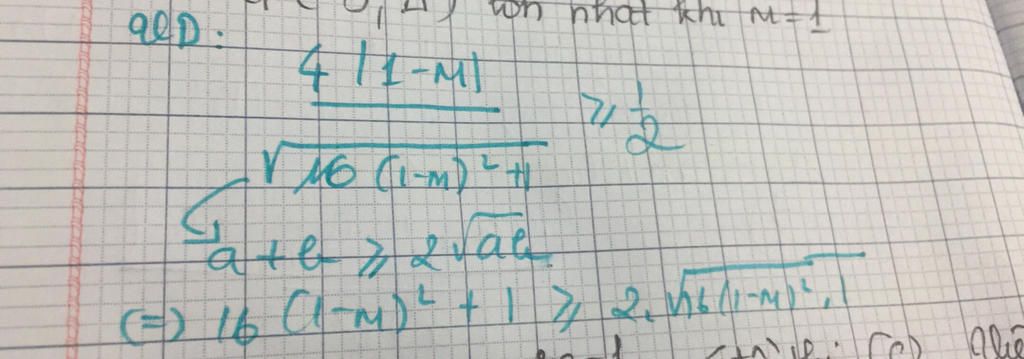 (0, Δ) lớn nhất khi m=1
4 |1-m|
√16 (1-m)² +1
≥ 1/2
a + b ≥ 2√ab
(=) 16 (1-m)² + 1 ≥ 2. √16 (1-m)² . 1